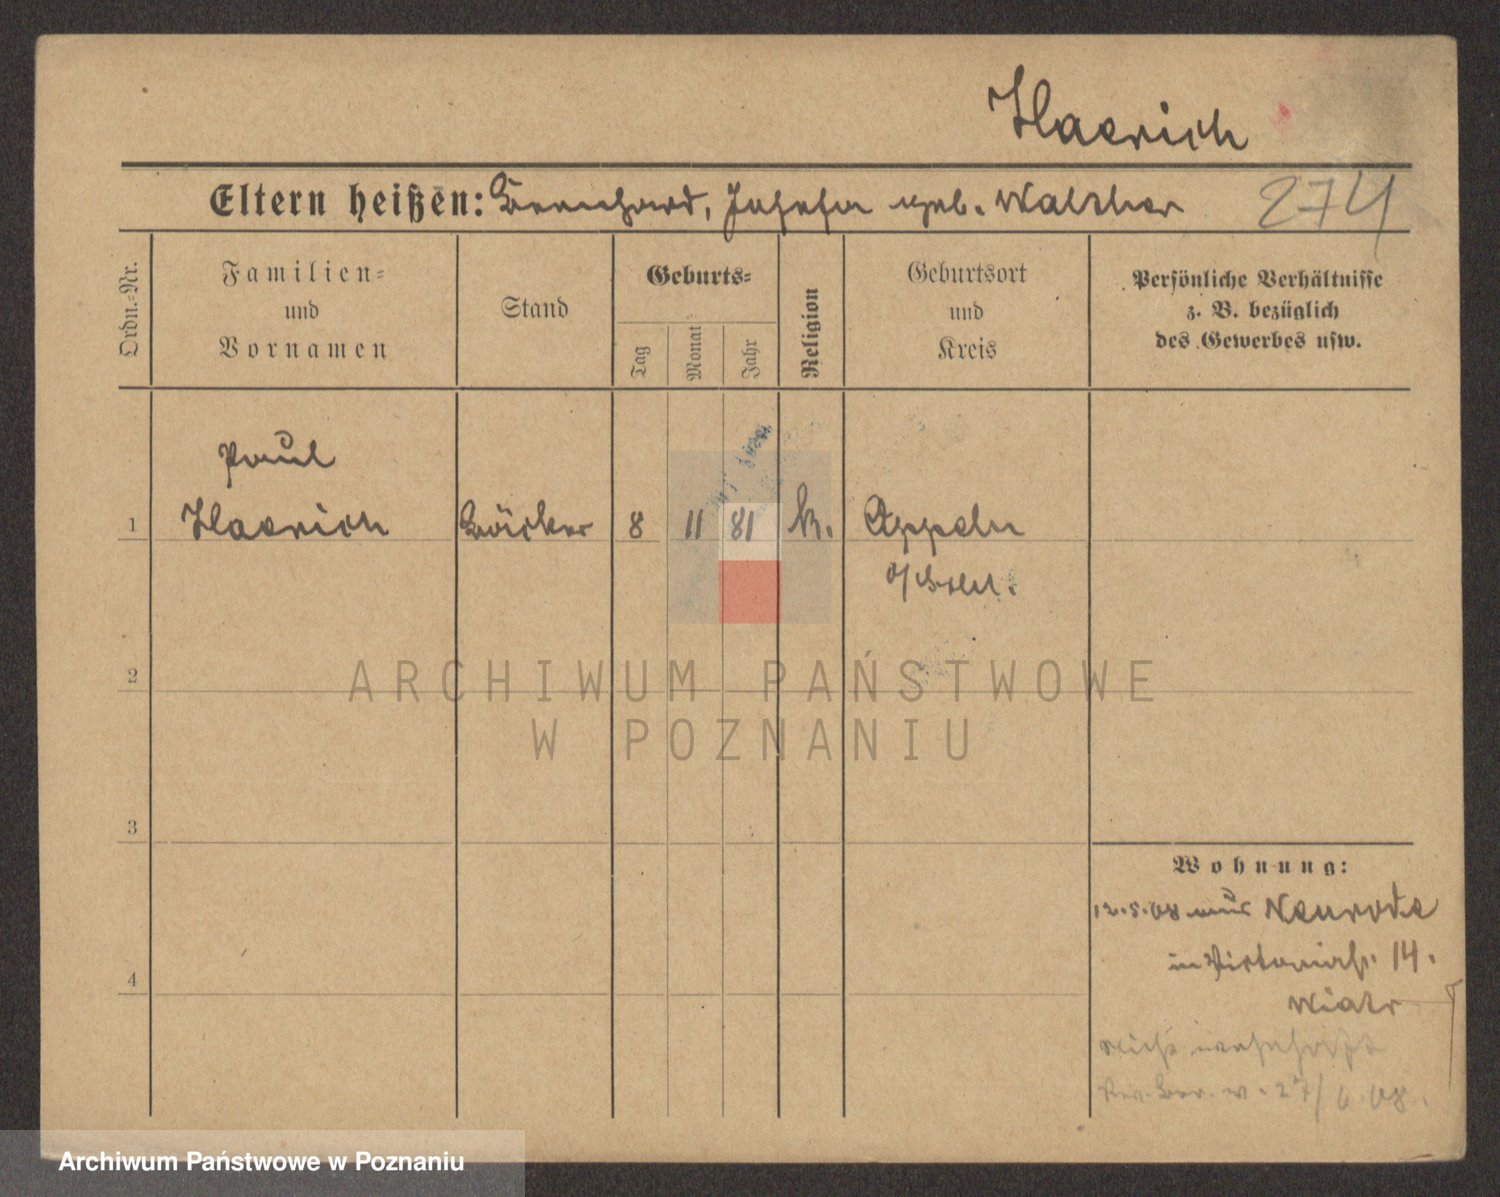 Haerich
Eltern heißen: Bernhard, Josefa geb. Walther 274
Ordn.-Nr.
Familien-
und
Vornamen
Stand
Geburts-
Tag
Monat
Jahr
Religion
Geburtsort
und
Kreis
Persönliche Verhältnisse
z. B. bezüglich
des Gewerbes usw.
Paul
1 Haerich Bäcker 8 11 81 k. Oppeln
2
ARCHIWUM PAŃSTWOWE
W POZNANIU
3
4
Wohnung:
12.5.08 aus Neurode
in Victoriastr. 14.
Wiatr
nicht
27/6.08.
Archiwum Państwowe w Poznaniu